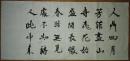 人間四月
芳菲盡山
寺桃花始
盛開長恨
春歸無覓
處不知轉
入此中來